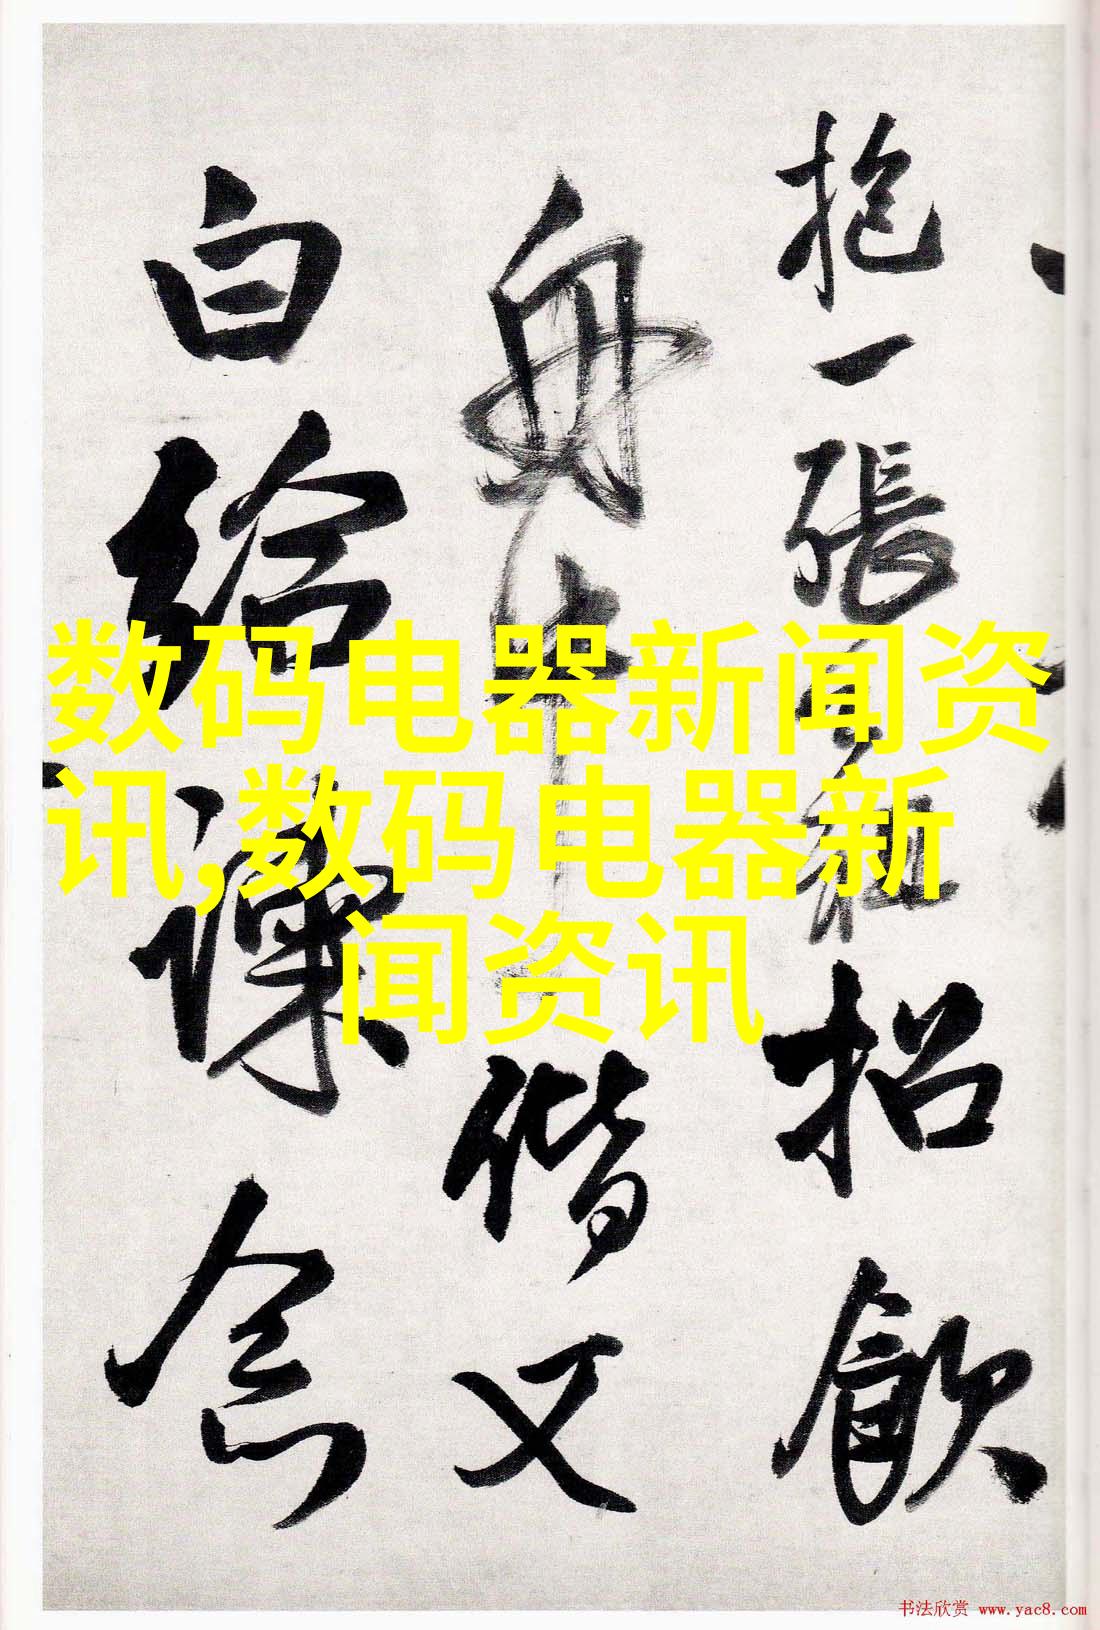 抱一張
招飲
舟中
偕又
白給諫念
数码电器新闻资
讯,数码电器新
闻资讯
书法欣赏 www.yac8.com